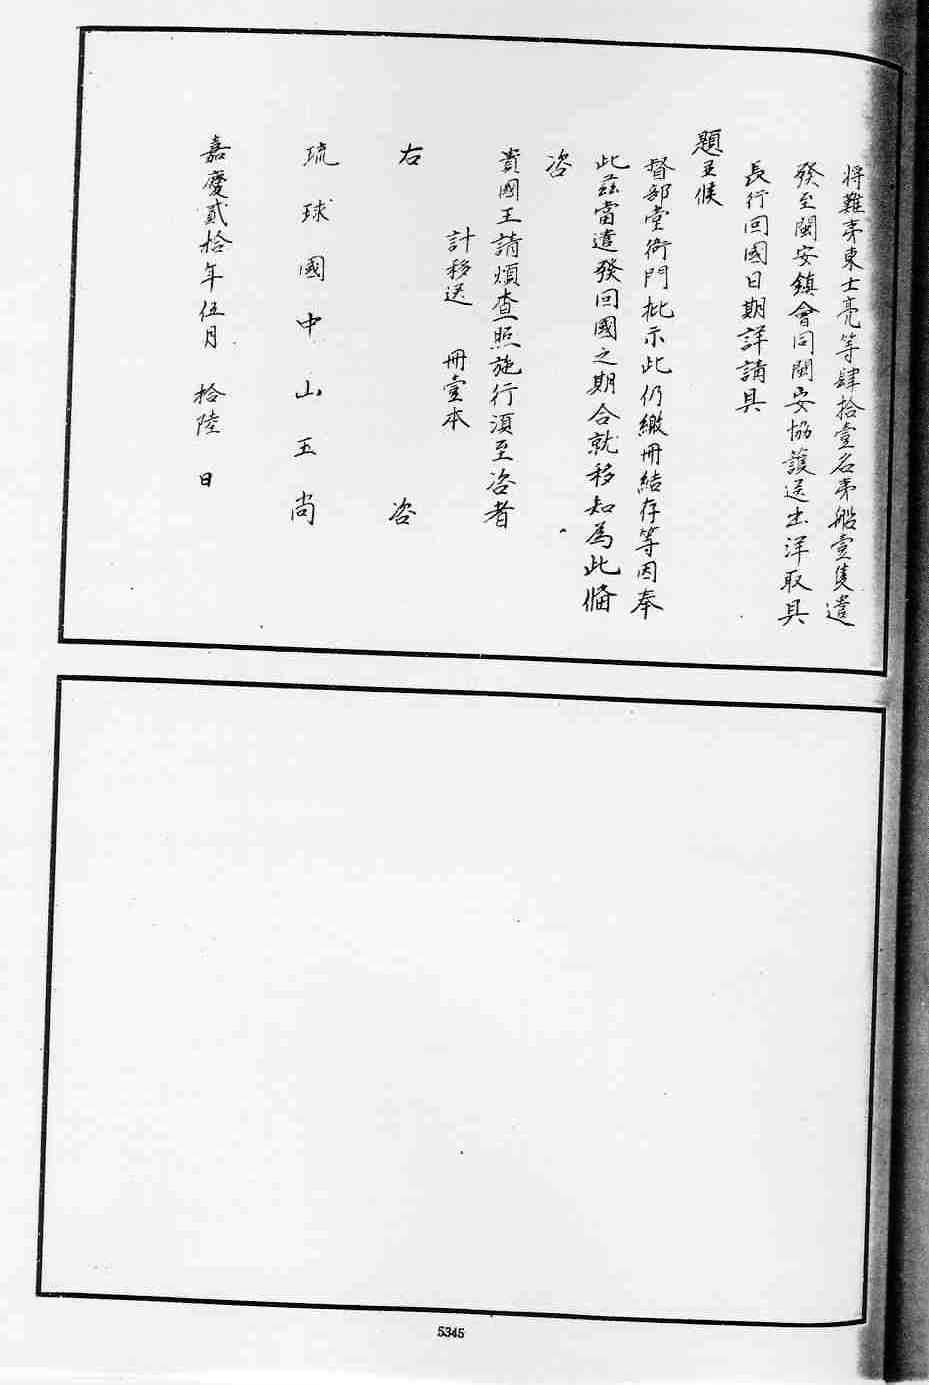 將難夷東士亮等肆拾壹名夷船壹隻遣
發至閩安鎮會同閩安協護送出洋取具
長行回國日期詳請具
題並候
督部堂衙門批示此仍繳冊結存等因奉
此茲當遣發回國之期合就移知為此備
咨
貴國王請煩查照施行須至咨者
計移送　冊壹本
右　咨
琉球國中山王尚
嘉慶貳拾年伍月　拾陸　日
5345